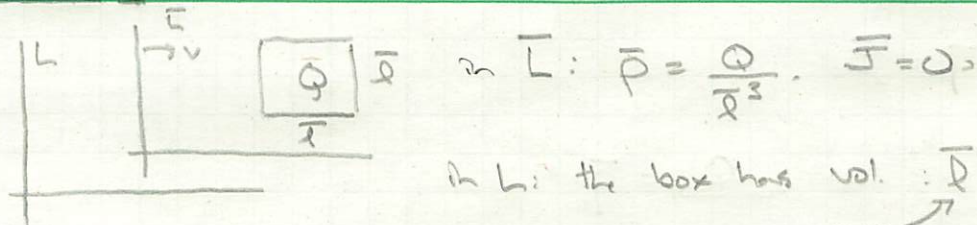 L L̄ → v Q l̄ l̄ in L̄: ρ̄ = Q / l̄³. J̄ = 0.
in L: the box has vol. : l̄